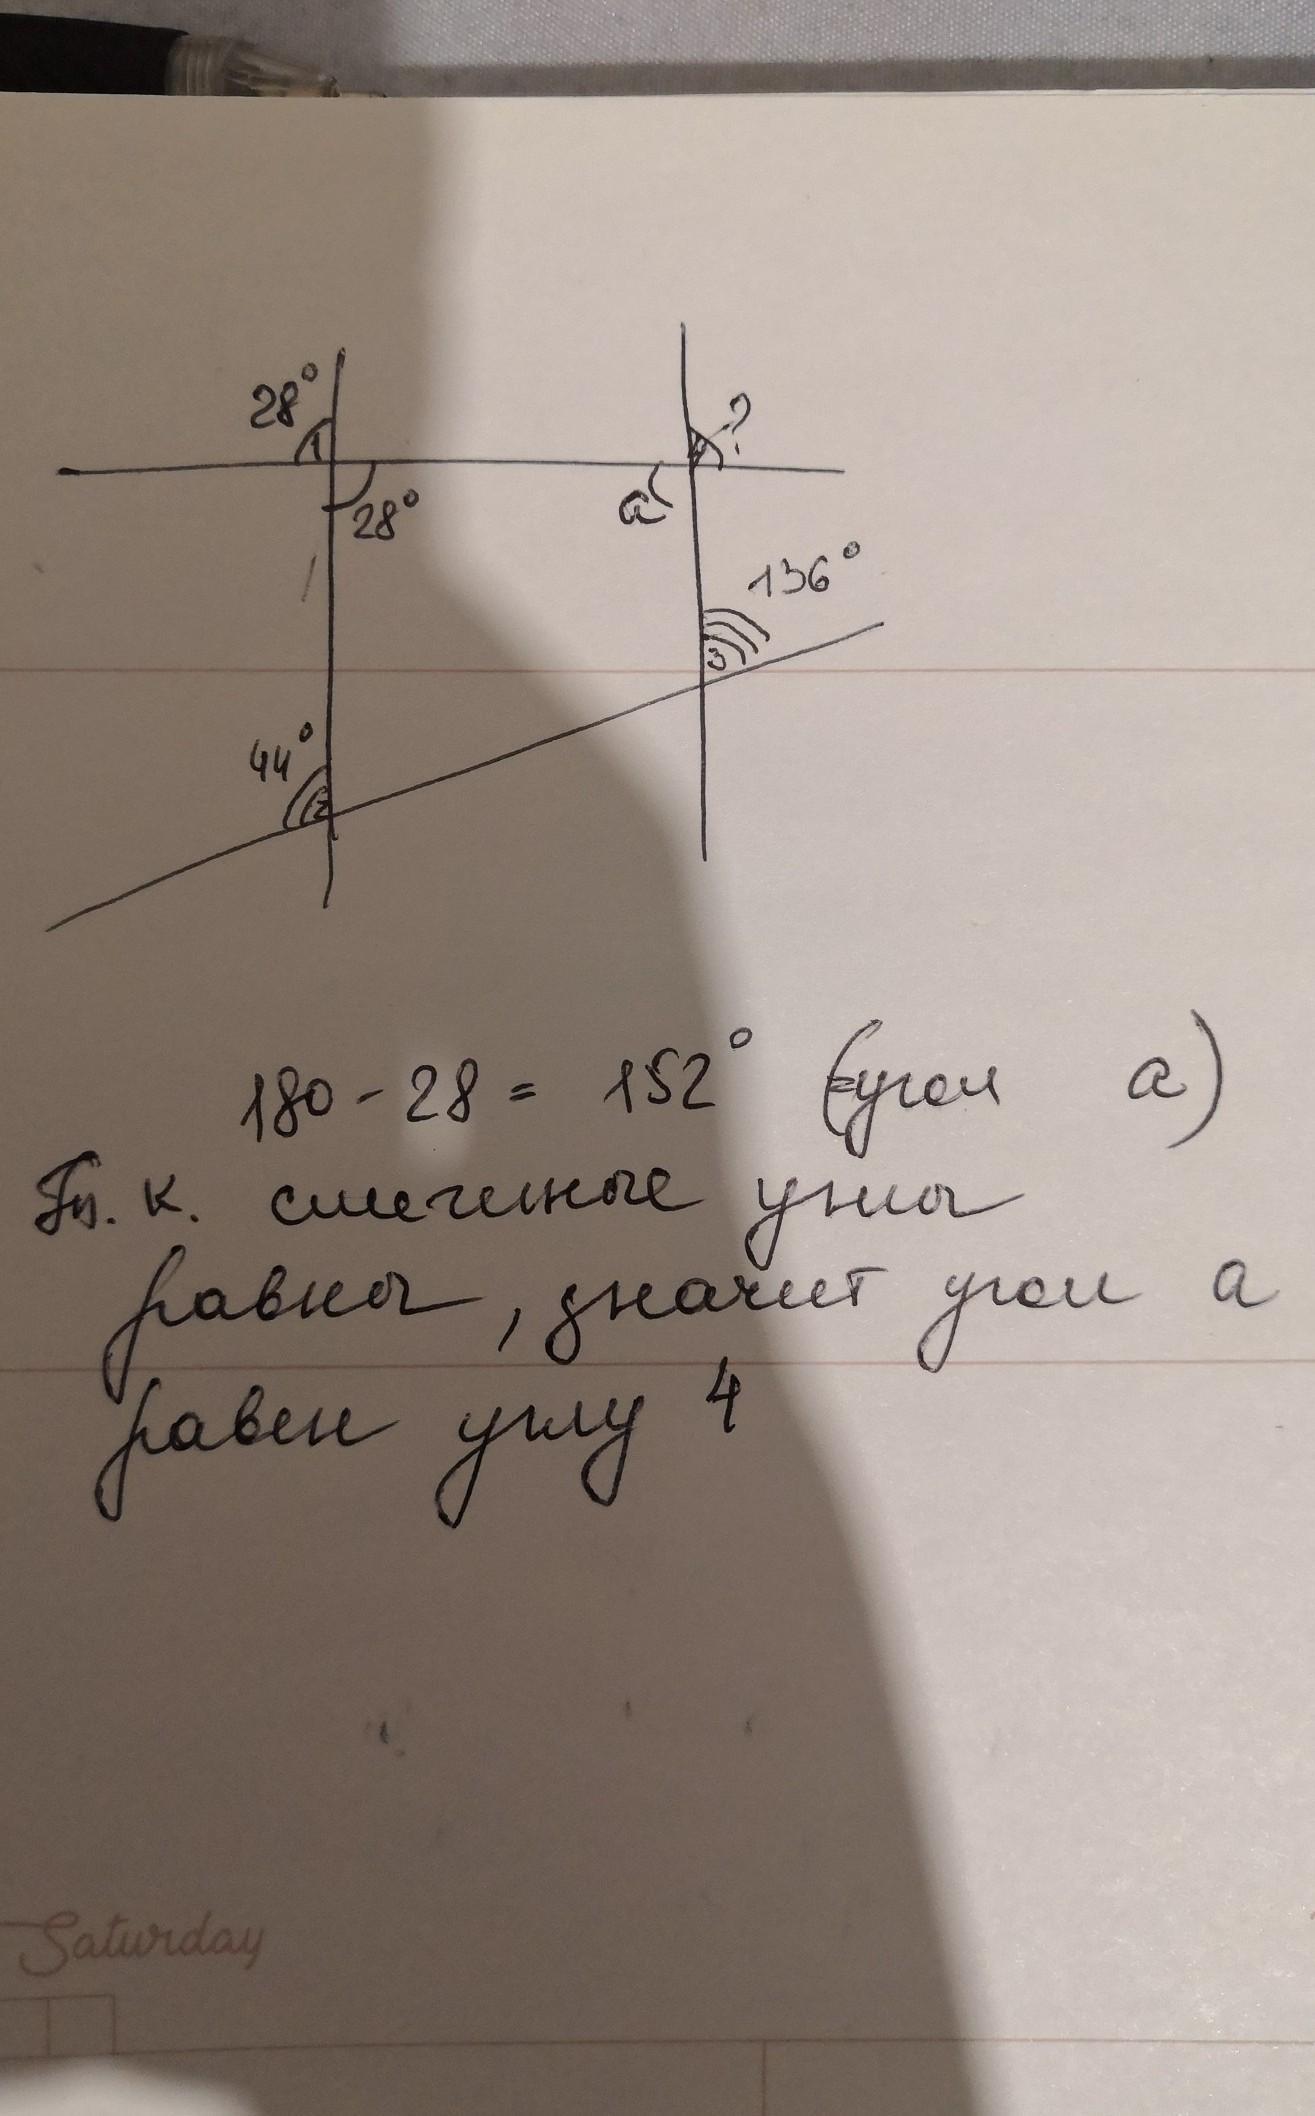 28°
?
1
28°
a
136°
3
44°
2
180 - 28 = 152° (=угол a)
Т. к. смеженые углы
равны, значит угол а
равен углу 4
Saturday